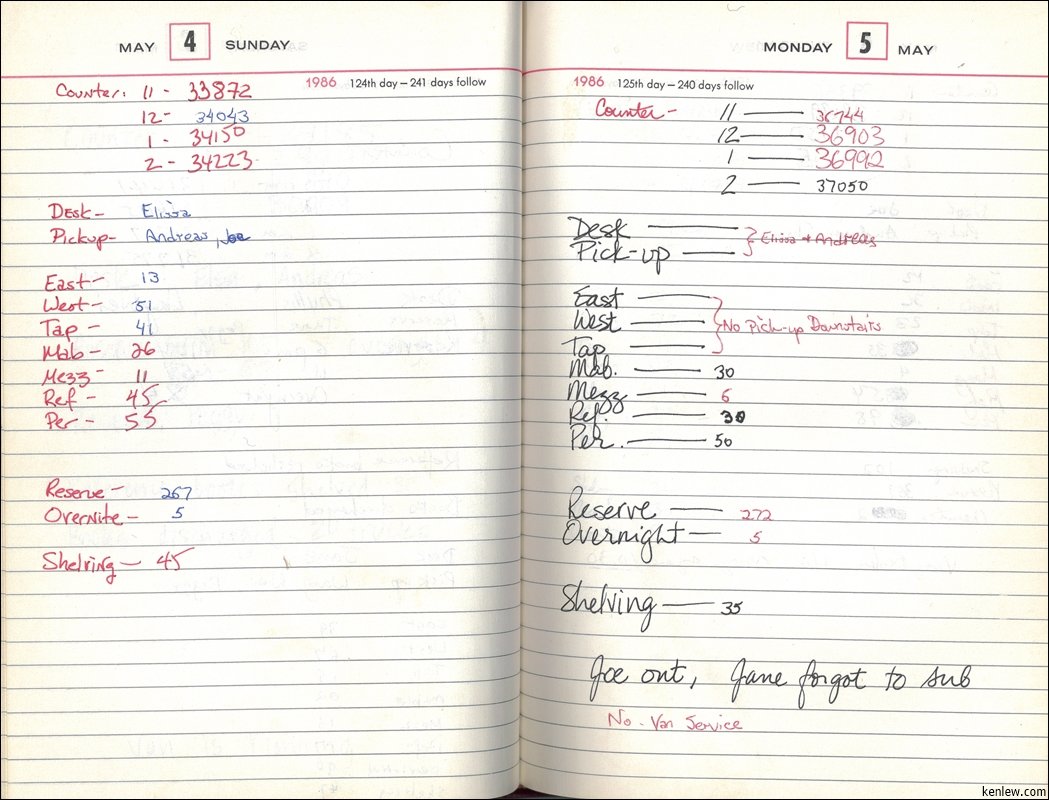 MAY 4 SUNDAY
1986 124th day – 241 days follow
Counter: 11 - 33872
12 - 34043
1 - 34150
2 - 34223
Desk - Elissa
Pickup - Andreas, Joe
East - 13
West - 51
Tap - 41
Mab - 26
Mezz - 11
Ref - 45
Per - 55
Reserve - 267
Overnite - 5
Shelving - 45
MONDAY 5 MAY
1986 125th day – 240 days follow
Counter - 11 — 36744
12 — 36903
1 — 36992
2 — 37050
Desk —
Pick-up — } Elissa + Andreas
East —
West — } No Pick-up Downstairs
Tap —
Mab. — 30
Mezz — 6
Ref. — 30
Per. — 50
Reserve — 272
Overnight — 5
Shelving — 35
Joe out, Jane forgot to sub
No - Van Service
kenlew.com